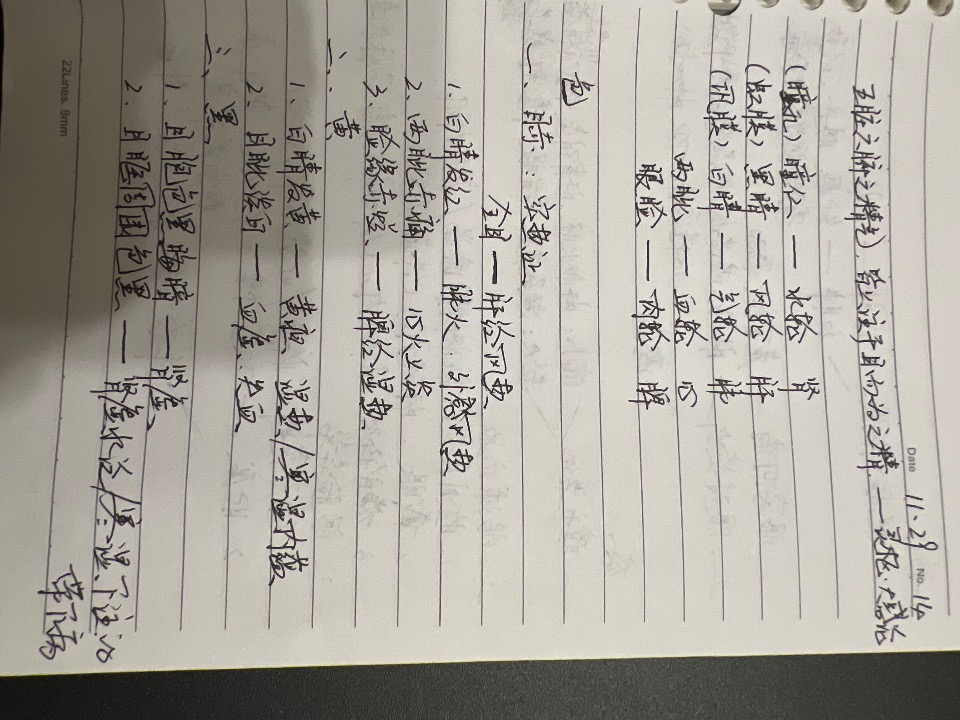 Date 11.29 No. 14
五脏六腑之精气,皆上注于目而为之精 —— 灵枢·大惑论
(瞳孔)瞳仁 —— 水轮 肾
(虹膜)黑睛 —— 风轮 肝
(巩膜)白睛 —— 气轮 肺
两眦 —— 血轮 心
眼睑 —— 肉轮 脾
色
一、目赤:实热证
全目 —— 肝经风热
1. 白睛发红 —— 肺火、外感风热
2. 两眦赤痛 —— 心火上炎
3. 睑缘赤烂 —— 脾经湿热
二、黄
1. 白睛发黄 —— 黄疸 湿热/寒湿内蕴
2. 目眦淡白 —— 血虚、失血
三、黑
1. 目胞色黑晦暗 —— 肾虚
2. 目眶周围色黑 —— 肾虚水泛/寒湿下注的
带下病
22Lines. 8mm